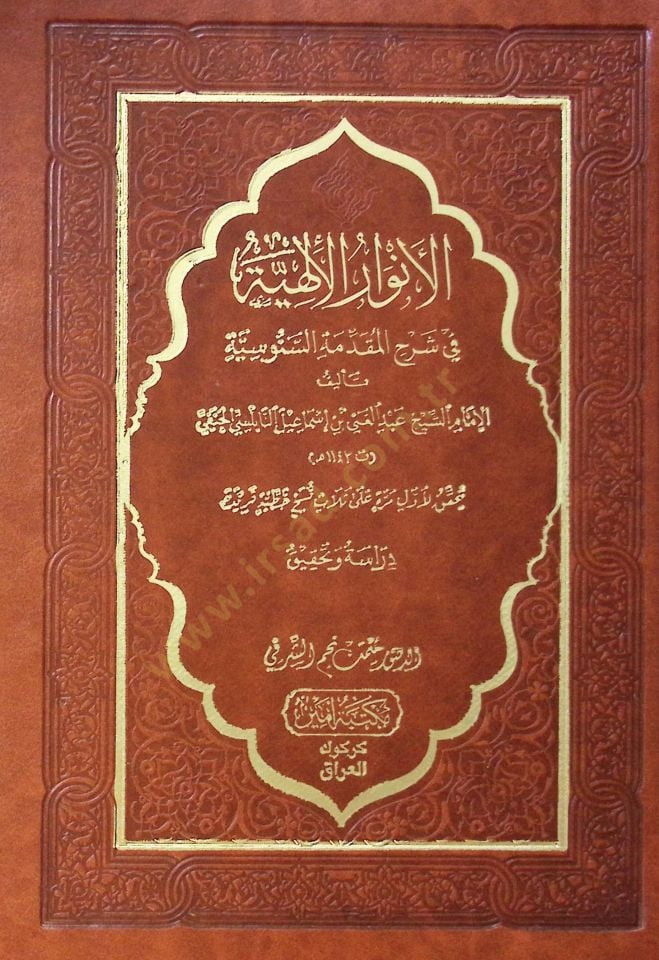 الأنوار الإلهية
في شرح المقدمة السنوسية
تأليف
الإمام الشيخ عبد الغني بن إسماعيل النابلسي الحنفي
(ت ١١٤٣هـ)
محقق لأول مرة على ثلاث نسخ خطية فريدة
دراسة وتحقيق
الدكتور حكمت نجم الشرفي
مكتبة أمير
كركوك
العراق
www.irsad.com.tr